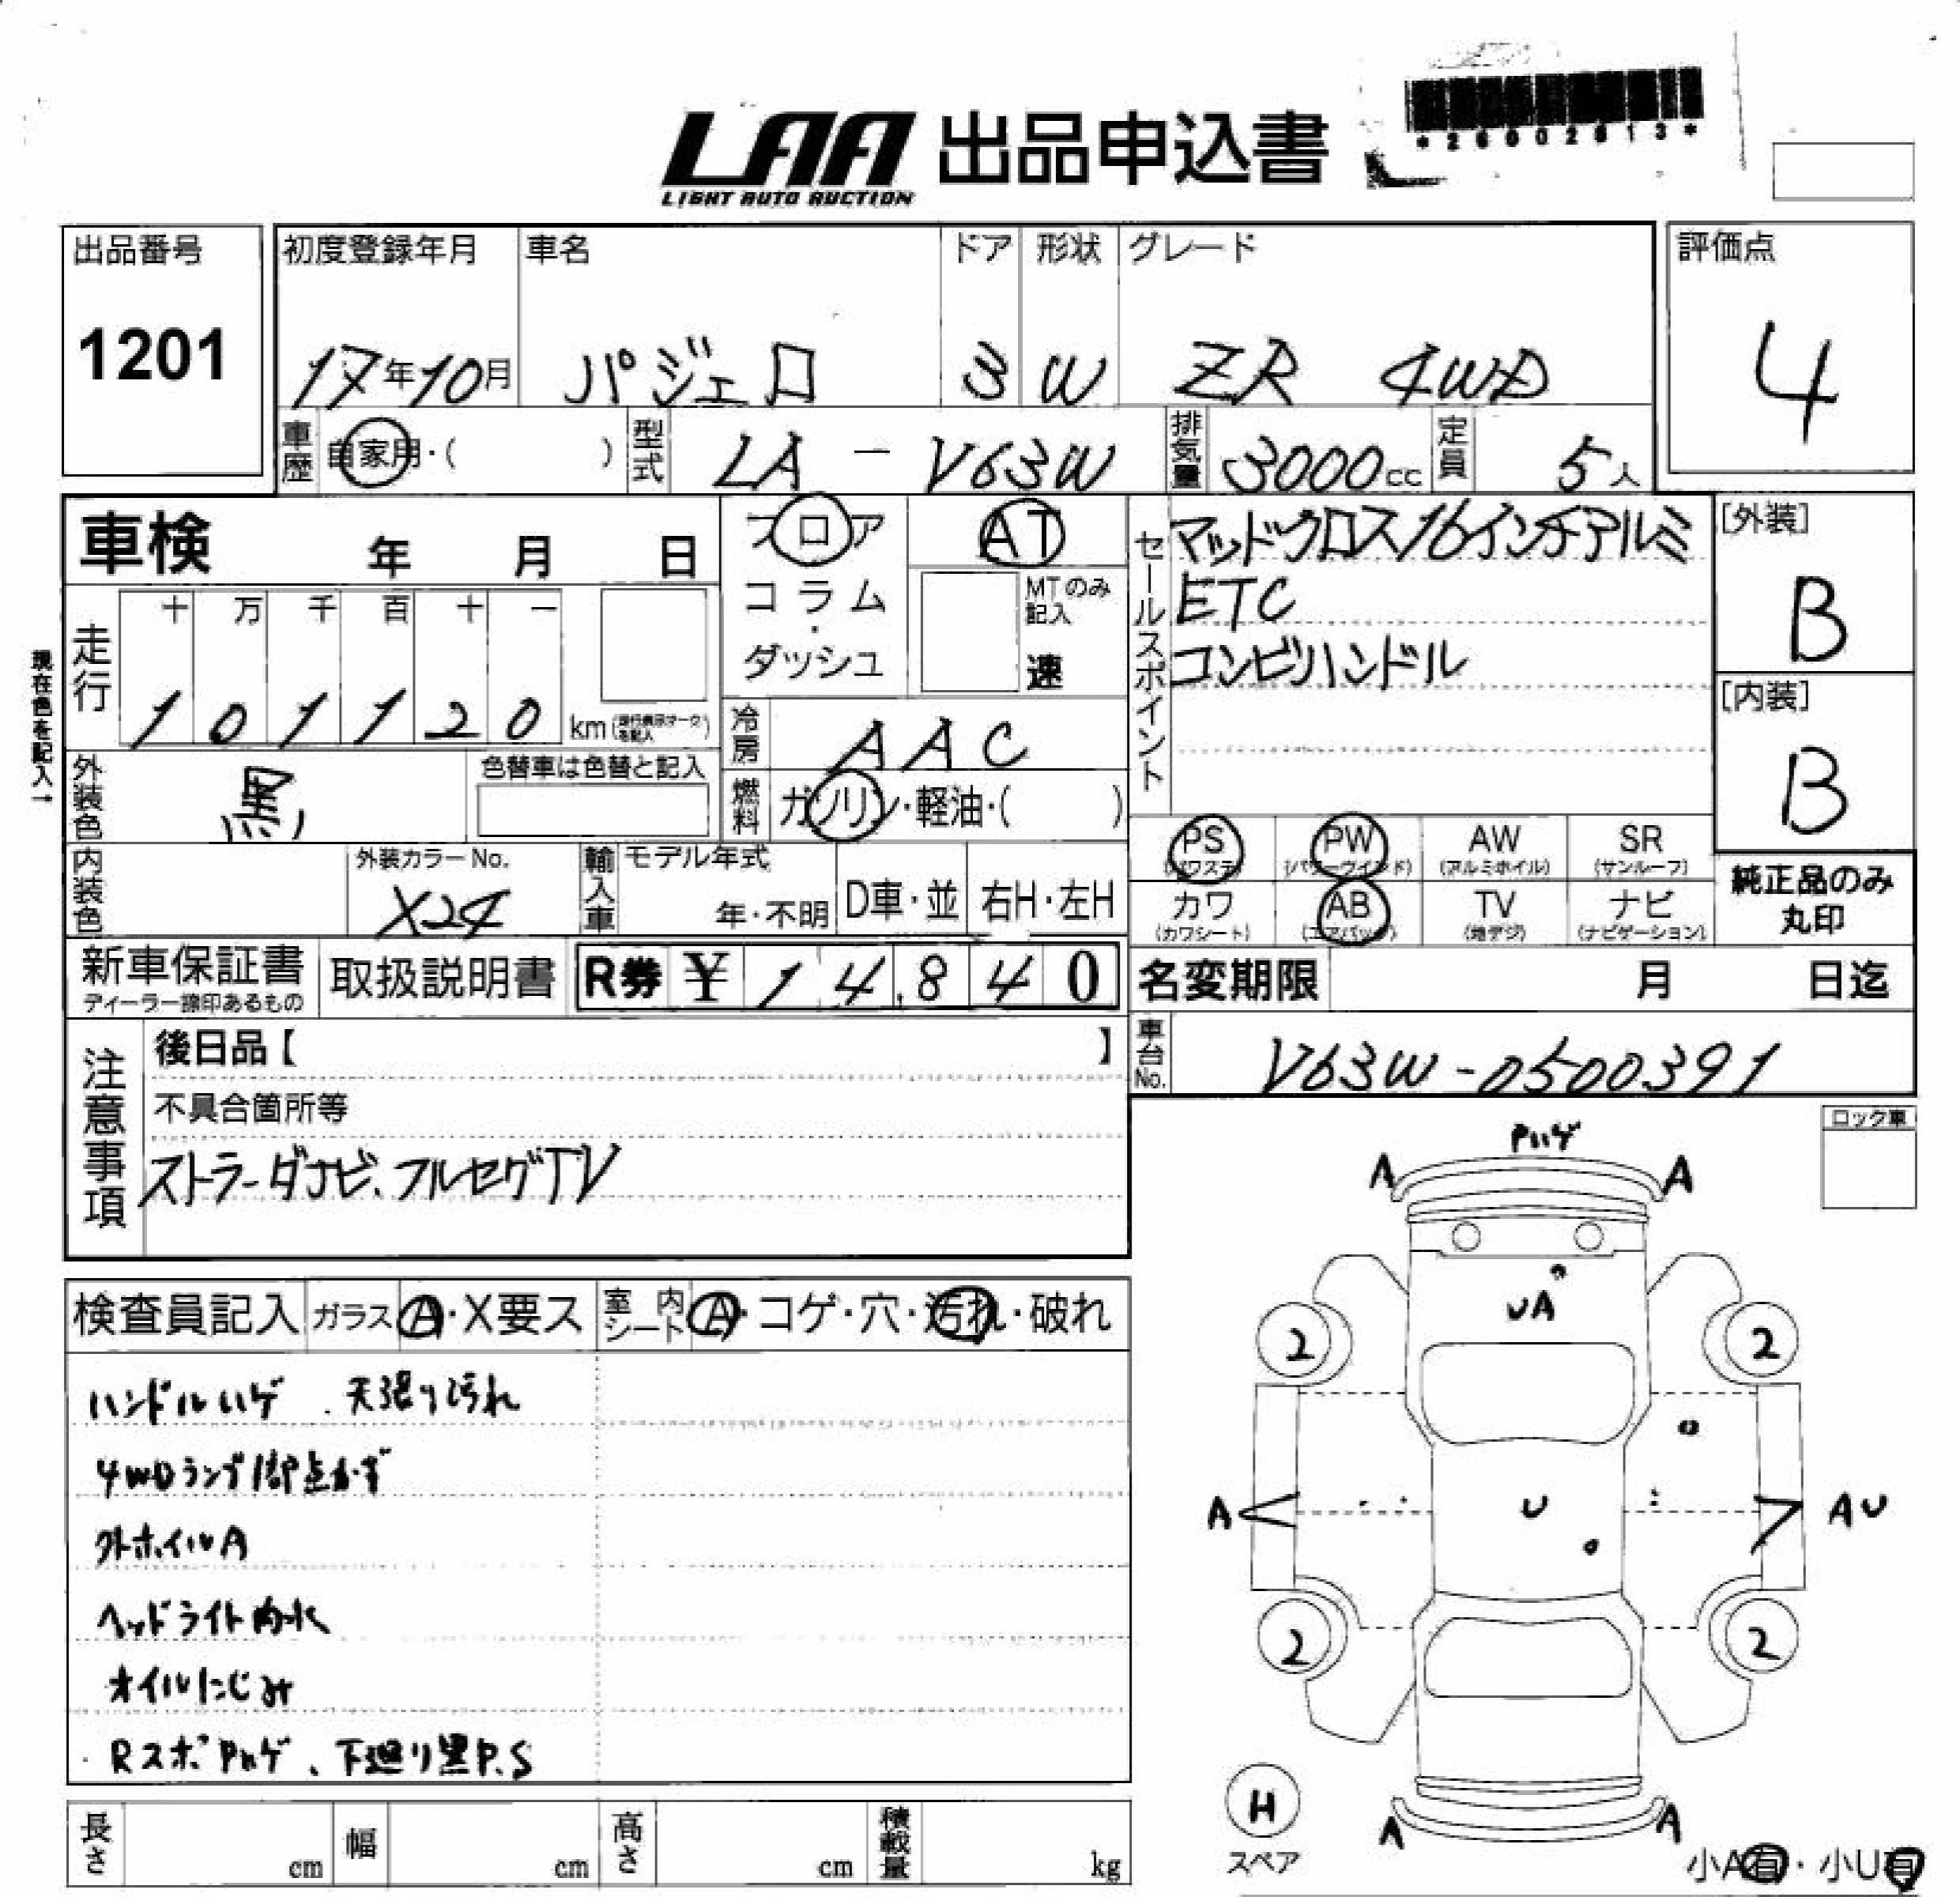 LAA 出品申込書
LIGHT AUTO AUCTION
*26002613*
出品番号
1201
初度登録年月
17年10月
車名
パジェロ
ドア
3
形状
W
グレード
ZR 4WD
評価点
4
車歴 自家用・( )
型式 LA-V63W
排気量 3000cc
定員 5人
車検 年 月 日
フロア
コラム・ダッシュ
AT
MTのみ記入
速
セールスポイント
マッドクロス16インチアルミ
ETC
コンビハンドル
[外装]
B
[内装]
B
現在色を記入→
走行
十 万 千 百 十 一
1 0 1 1 2 0 km
冷房 AAC
外装色 黒
色替車は色替と記入
燃料 ガソリン・軽油・( )
内装色
外装カラーNo.
X24
輸入車 モデル年式
年・不明
D車・並
右H・左H
PS
(パワステ)
PW
(パワーウインド)
AW
(アルミホイル)
SR
(サンルーフ)
カワ
(カワシート)
AB
(エアバック)
TV
(地デジ)
ナビ
(ナビゲーション)
純正品のみ
丸印
新車保証書
ディーラー捺印あるもの
取扱説明書
R券 ¥ 14,840
名変期限 月 日迄
車台No. V63W-0500391
注意事項
後日品【 】
不具合箇所等
ストラーダナビ、フルセグTV
ロック車
検査員記入
ガラス A・X要ス
室内シート A・コゲ・穴・汚れ・破れ
ハンドルハゲ、天張り汚れ
4WDランプ1部点かず
外ホイルA
ヘッドライト内水
オイルにじみ
Rスポ Pハゲ、下廻り黒P.S
Pハゲ
A A
UA
2 2
A U AU
2 2
H
スペア
A A
小A有・小U有
長さ cm
幅 cm
高さ cm
積載量 kg